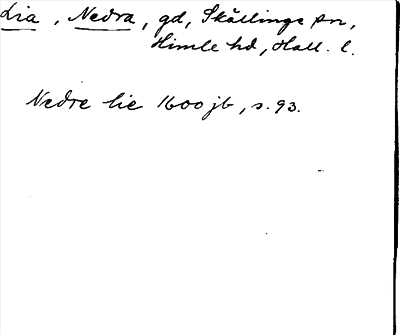 Lia, Nedra, gd, Skällinge sn,
Himle hd, Hall. l.
Nedre lie 1600 jb, s. 93.